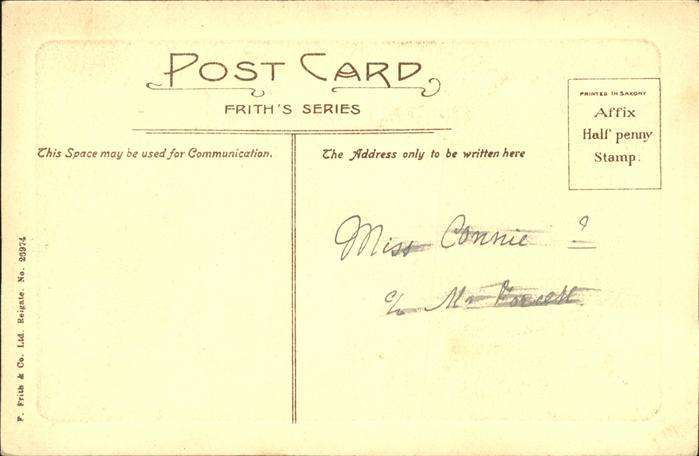 POST CARD
FRITH'S SERIES
PRINTED IN SAXONY
Affix
Half penny
Stamp.
This Space may be used for Communication.
The Address only to be written here
Miss Connie ?
c/o Mr
F. Frith & Co. Ltd. Reigate. No. 26974